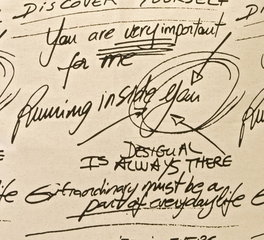 DISCOVER YOURSELF
You are very important
for me
Running inside you
DESIGUAL
IS ALWAYS THERE
life Extraordinary must be a
part of everyday life